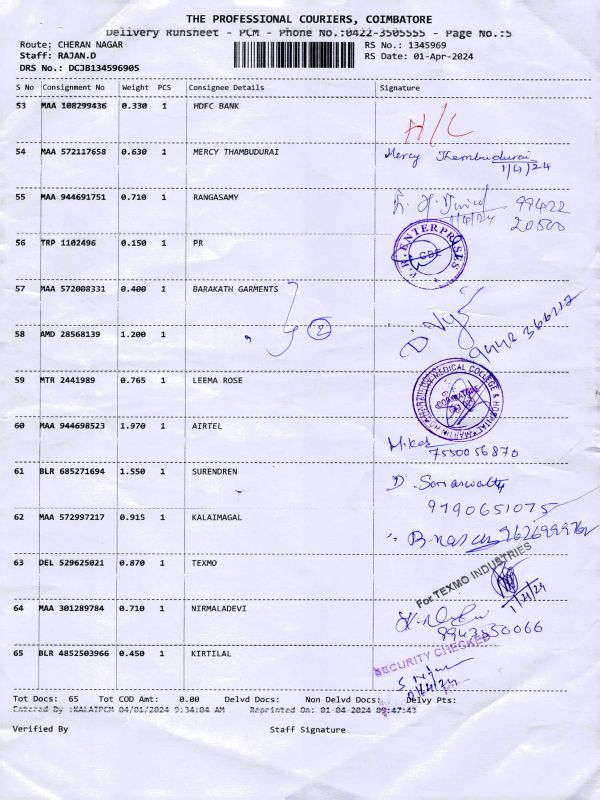 THE PROFESSIONAL COURIERS, COIMBATORE
Delivery Runsheet - PCM - Phone No.:0422-3505555 - Page No.:5
Route: CHERAN NAGAR RS No.: 1345969
Staff: RAJAN.D RS Date: 01-Apr-2024
DRS No.: DCJB134596905
S No Consignment No Weight PCS Consignee Details Signature
53 MAA 108299436 0.330 1 HDFC BANK H/C
54 MAA 572117658 0.630 1 MERCY THAMBUDURAI Mercy Thambudurai
1/4/24
55 MAA 944691751 0.710 1 RANGASAMY 99422
1/4/24 20500
56 TRP 1102496 0.150 1 PR ENTERPRISES CBE
57 MAA 572008331 0.400 1 BARAKATH GARMENTS
2 9442366212
58 AMD 28568139 1.200 1
59 MTR 2441989 0.765 1 LEEMA ROSE MEDICAL COLLEGE & HOSPITAL
60 MAA 944698523 1.970 1 AIRTEL
7550056870
61 BLR 685271694 1.550 1 SURENDREN
9790651075
62 MAA 572997217 0.915 1 KALAIMAGAL
63 DEL 529625021 0.870 1 TEXMO For TEXMO INDUSTRIES
1/4/24
64 MAA 301289784 0.710 1 NIRMALADEVI
65 BLR 4852503966 0.450 1 KIRTILAL SECURITY CHECKED
Tot Docs: 65 Tot COD Amt: 0.00 Delvd Docs: Non Delvd Docs: Delvy Pts:
Entered By :KALAIPCM 04/01/2024 9:34:04 AM Reprinted On: 01-04-2024 09:47:43
Verified By Staff Signature